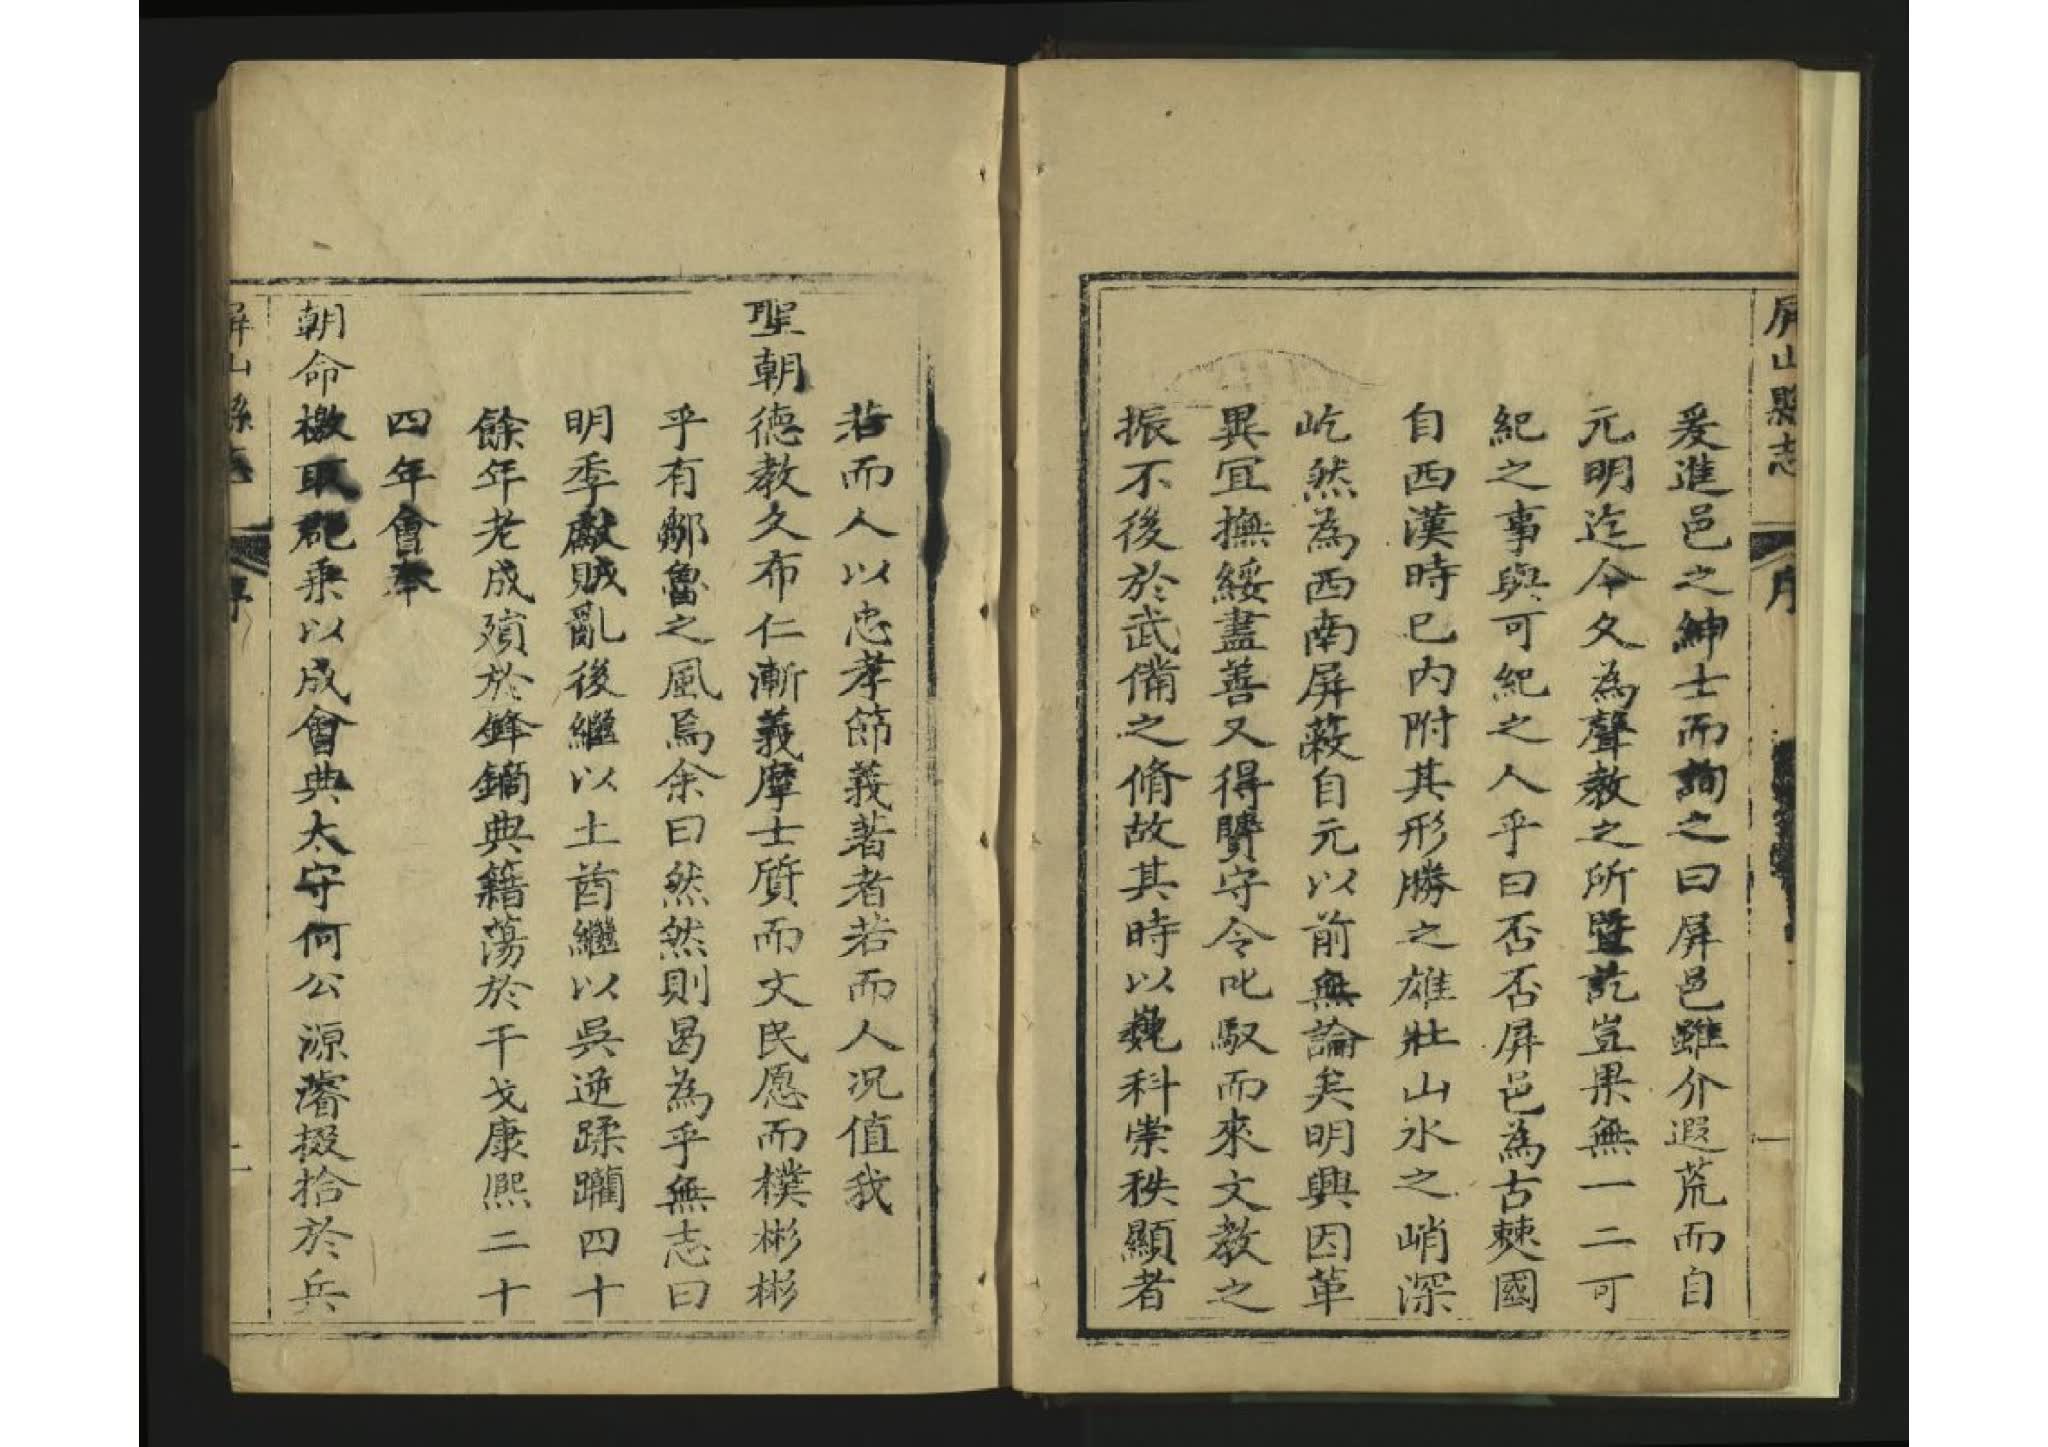 屏山縣志 序 一
爰進邑之紳士而詢之曰屏邑雖介遐荒而自
元明迄今久為聲教之所暨訖豈果無一二可
紀之事與可紀之人乎曰否否屏邑為古僰國
自西漢時已內附其形勝之雄壯山水之峭深
屹然為西南屏蔽自元以前無論矣明興因革
異宜撫綏盡善又得賢守令叱馭而來文教之
振不後於武備之脩故其時以巍科崇秩顯者
若而人以忠孝節義著者若而人況值我
聖朝德教久布仁漸義摩士質而文民愿而樸彬彬
乎有鄒魯之風焉余曰然然則曷為乎無志曰
明季獻賊亂後繼以土酋繼以吳逆蹂躪四十
餘年老成殞於鋒鏑典籍蕩於干戈康熙二十
四年會奉
朝命檄取郡乘以成會典太守何公源濬掇拾於兵
屏山縣志 序 二